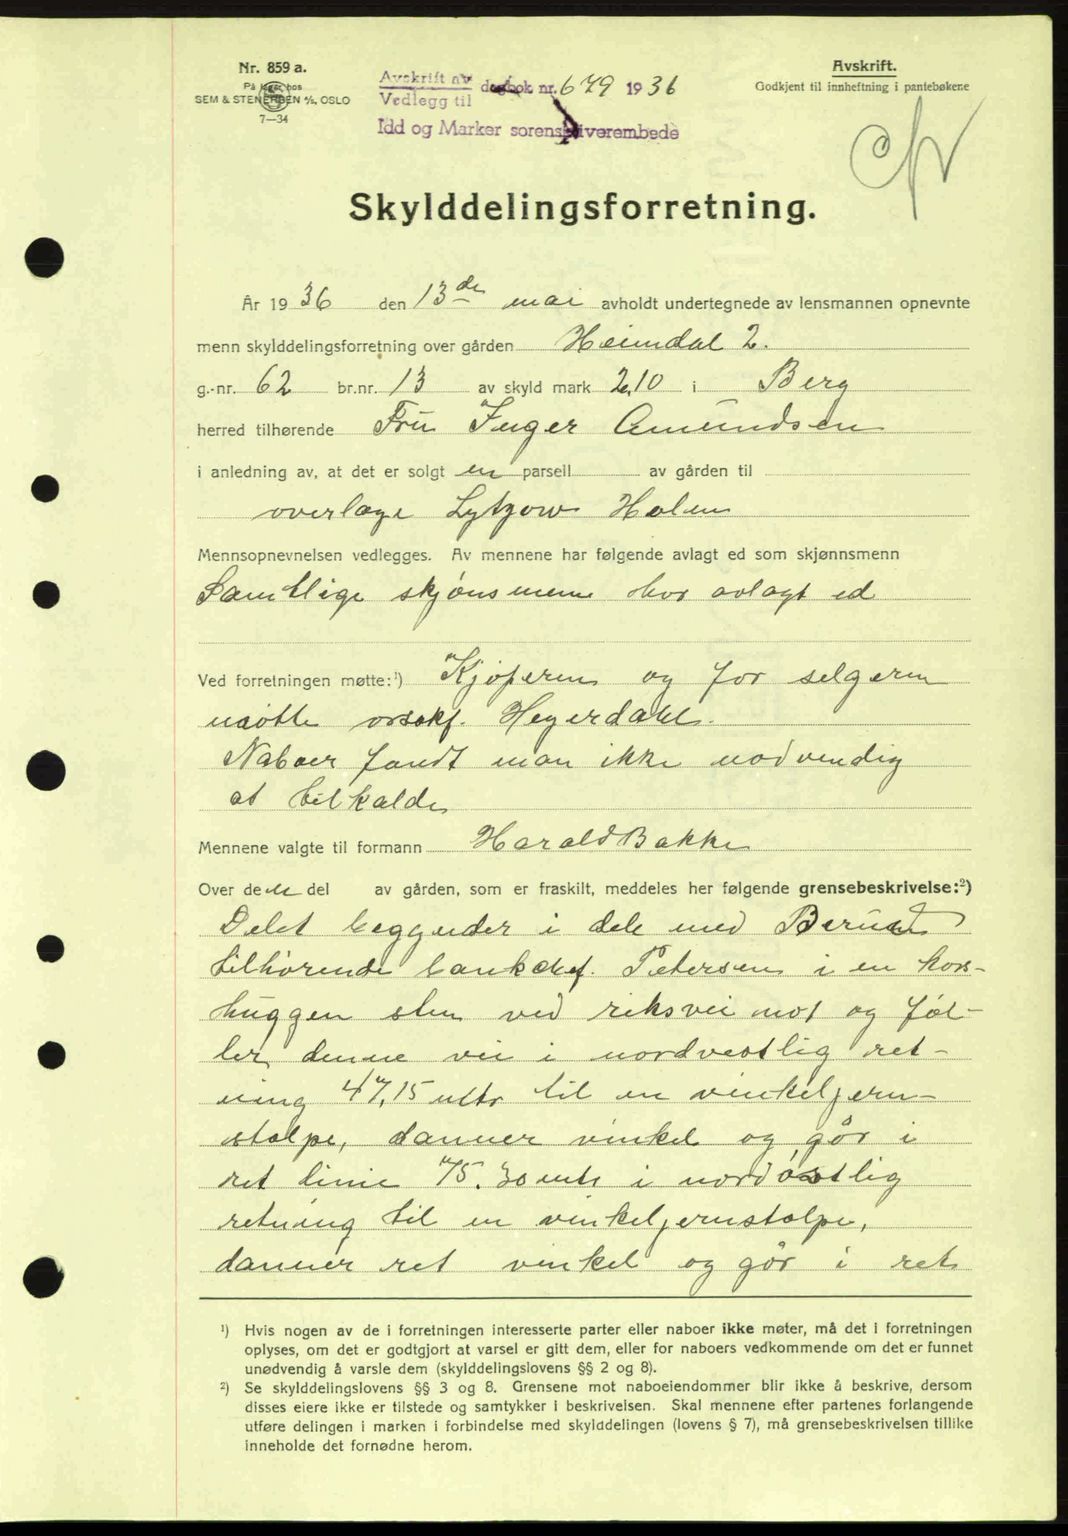 Nr. 859 a.
På lager hos
SEM & STENERSEN A/S, OSLO
7—34
Avskrift av
Vedlegg til
dagbok nr. 679 1936
Idd og Marker sorenskriverembede
Avskrift.
Godkjent til innheftning i pantebøkene
Skylddelingsforretning.
År 1936 den 13de mai avholdt undertegnede av lensmannen opnevnte
menn skylddelingsforretning over gården Heimdal 2.
g.-nr. 62 br.nr. 13 av skyld mark 2,10 i Berg
herred tilhørende Fru Inger Amundsen
i anledning av, at det er solgt en parsell av gården til
overlæge Lytzow Holm
Mennsopnevnelsen vedlegges. Av mennene har følgende avlagt ed som skjønnsmenn
Samtlige skjønsmenn har avlagt ed
Ved forretningen møtte:¹) Kjøperen og for selgeren
møtte orsakf. Heyerdahl.
Naboer fandt man ikke nødvendig
at tilkalde
Mennene valgte til formann Harald Bakke
Over de del av gården, som er fraskilt, meddeles her følgende grensebeskrivelse:²)
Delet beggynder i dele med
tilhørende bankchef. Petersen i en kors-
huggen sten ved riksvei no 1 og føl-
ler denne vei i nordvestlig ret-
ning 47,15 mtr til en vinkeljern-
stolpe, danner vinkel og går i
ret linie 75.30 mtr i nordøstlig
retning til en vinkeljernstolpe,
danner ret vinkel og går i ret
¹) Hvis nogen av de i forretningen interesserte parter eller naboer ikke møter, må det i forretningen
oplyses, om det er godtgjort at varsel er gitt dem, eller for naboers vedkommende om det er funnet
unødvendig å varsle dem (skylddelingslovens §§ 2 og 8).
²) Se skylddelingslovens §§ 3 og 8. Grensene mot naboeiendommer blir ikke å beskrive, dersom
disses eiere ikke er tilstede og samtykker i beskrivelsen. Skal mennene efter partenes forlangende
utføre delingen i marken i forbindelse med skylddelingen (lovens § 7), må grensebeskrivelsen tillike
inneholde det fornødne herom.